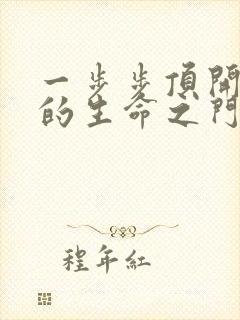 一步步頂開
的生命之門
程年紅